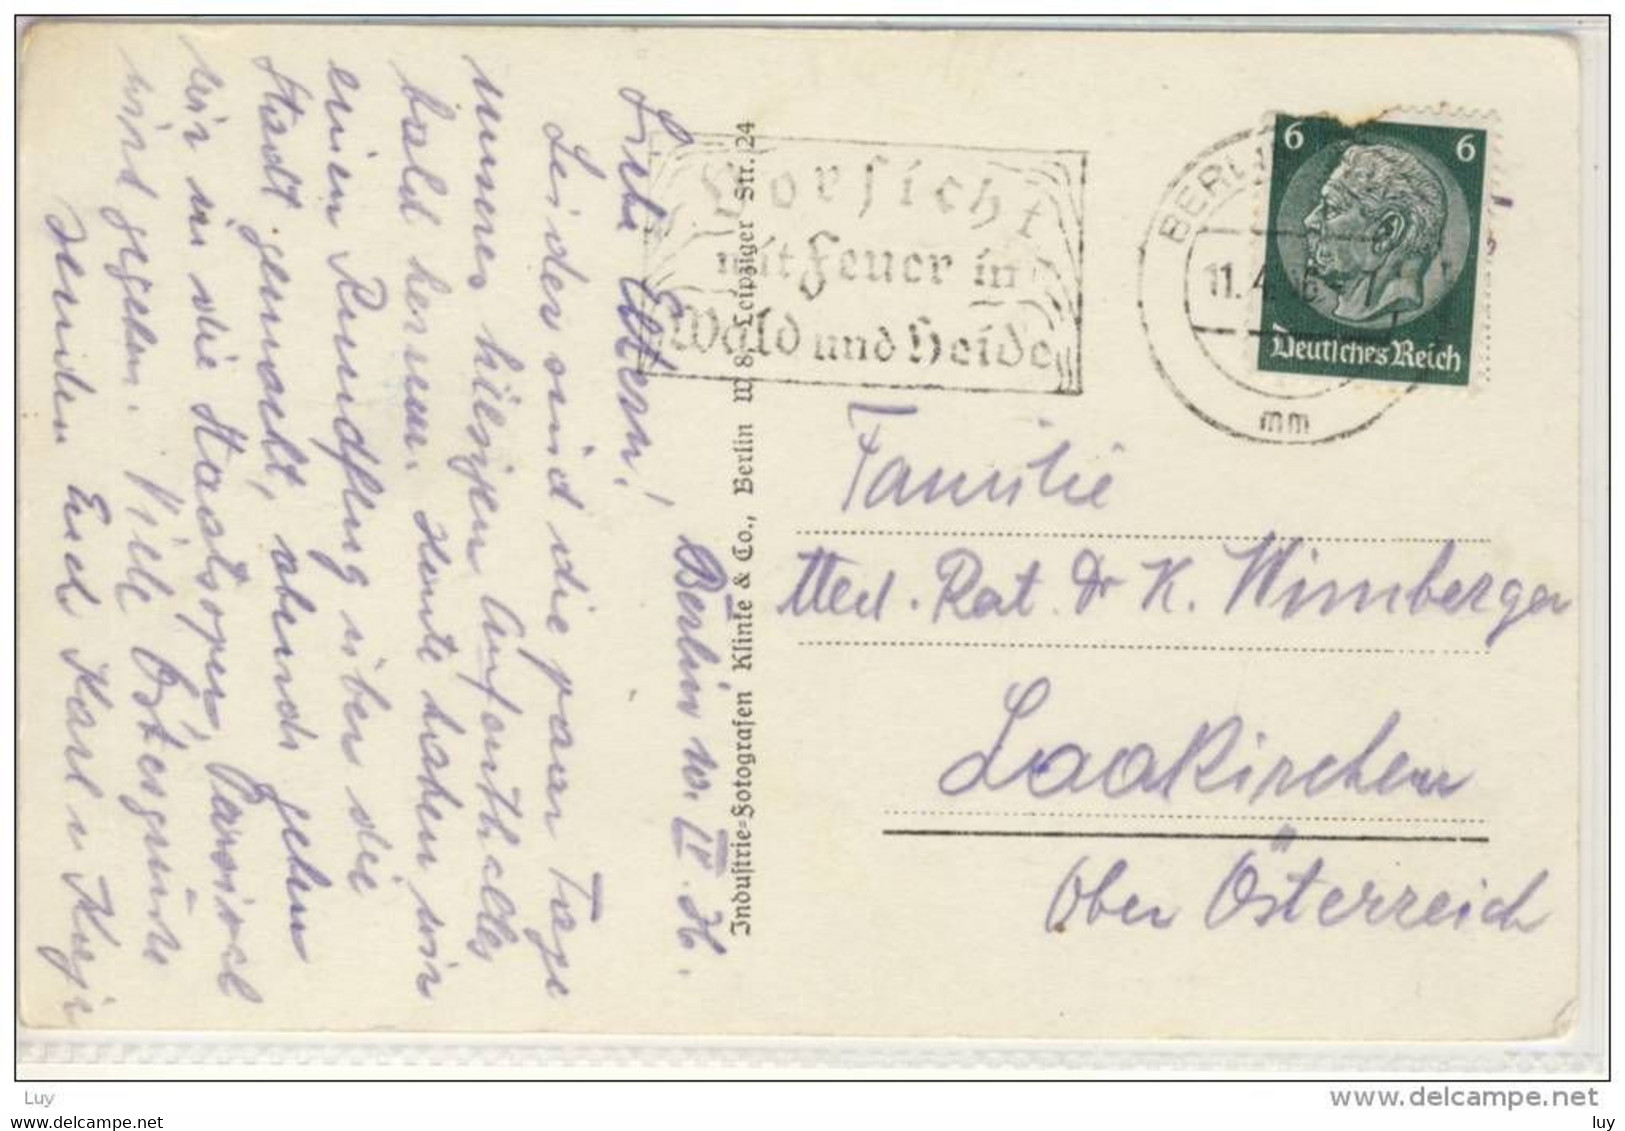 Liebe Eltern!
Berlin 10. IV. 36.
Leider sind die paar Tage
unseres hiesigen Aufenthaltes
bald herum. Heute haben wir
einen Rundflug über die
Stadt gemacht, abends gehen
wir in die Staatsoper, Parsival
wird gegeben. Viele Ostergrüße
senden Euch Karl u
Industrie-Fotografen Klinke & Co., Berlin W 8, Leipziger Str. 24
Vorsicht
mit Feuer in
Wald und Heide
BERLIN
11.4.36
mm
6 6
Deutsches Reich
Familie
Med. Rat Dr K. Wimberger
Laakirchen
Ober Österreich
Luy
www.delcampe.net
www.delcampe.net
luy